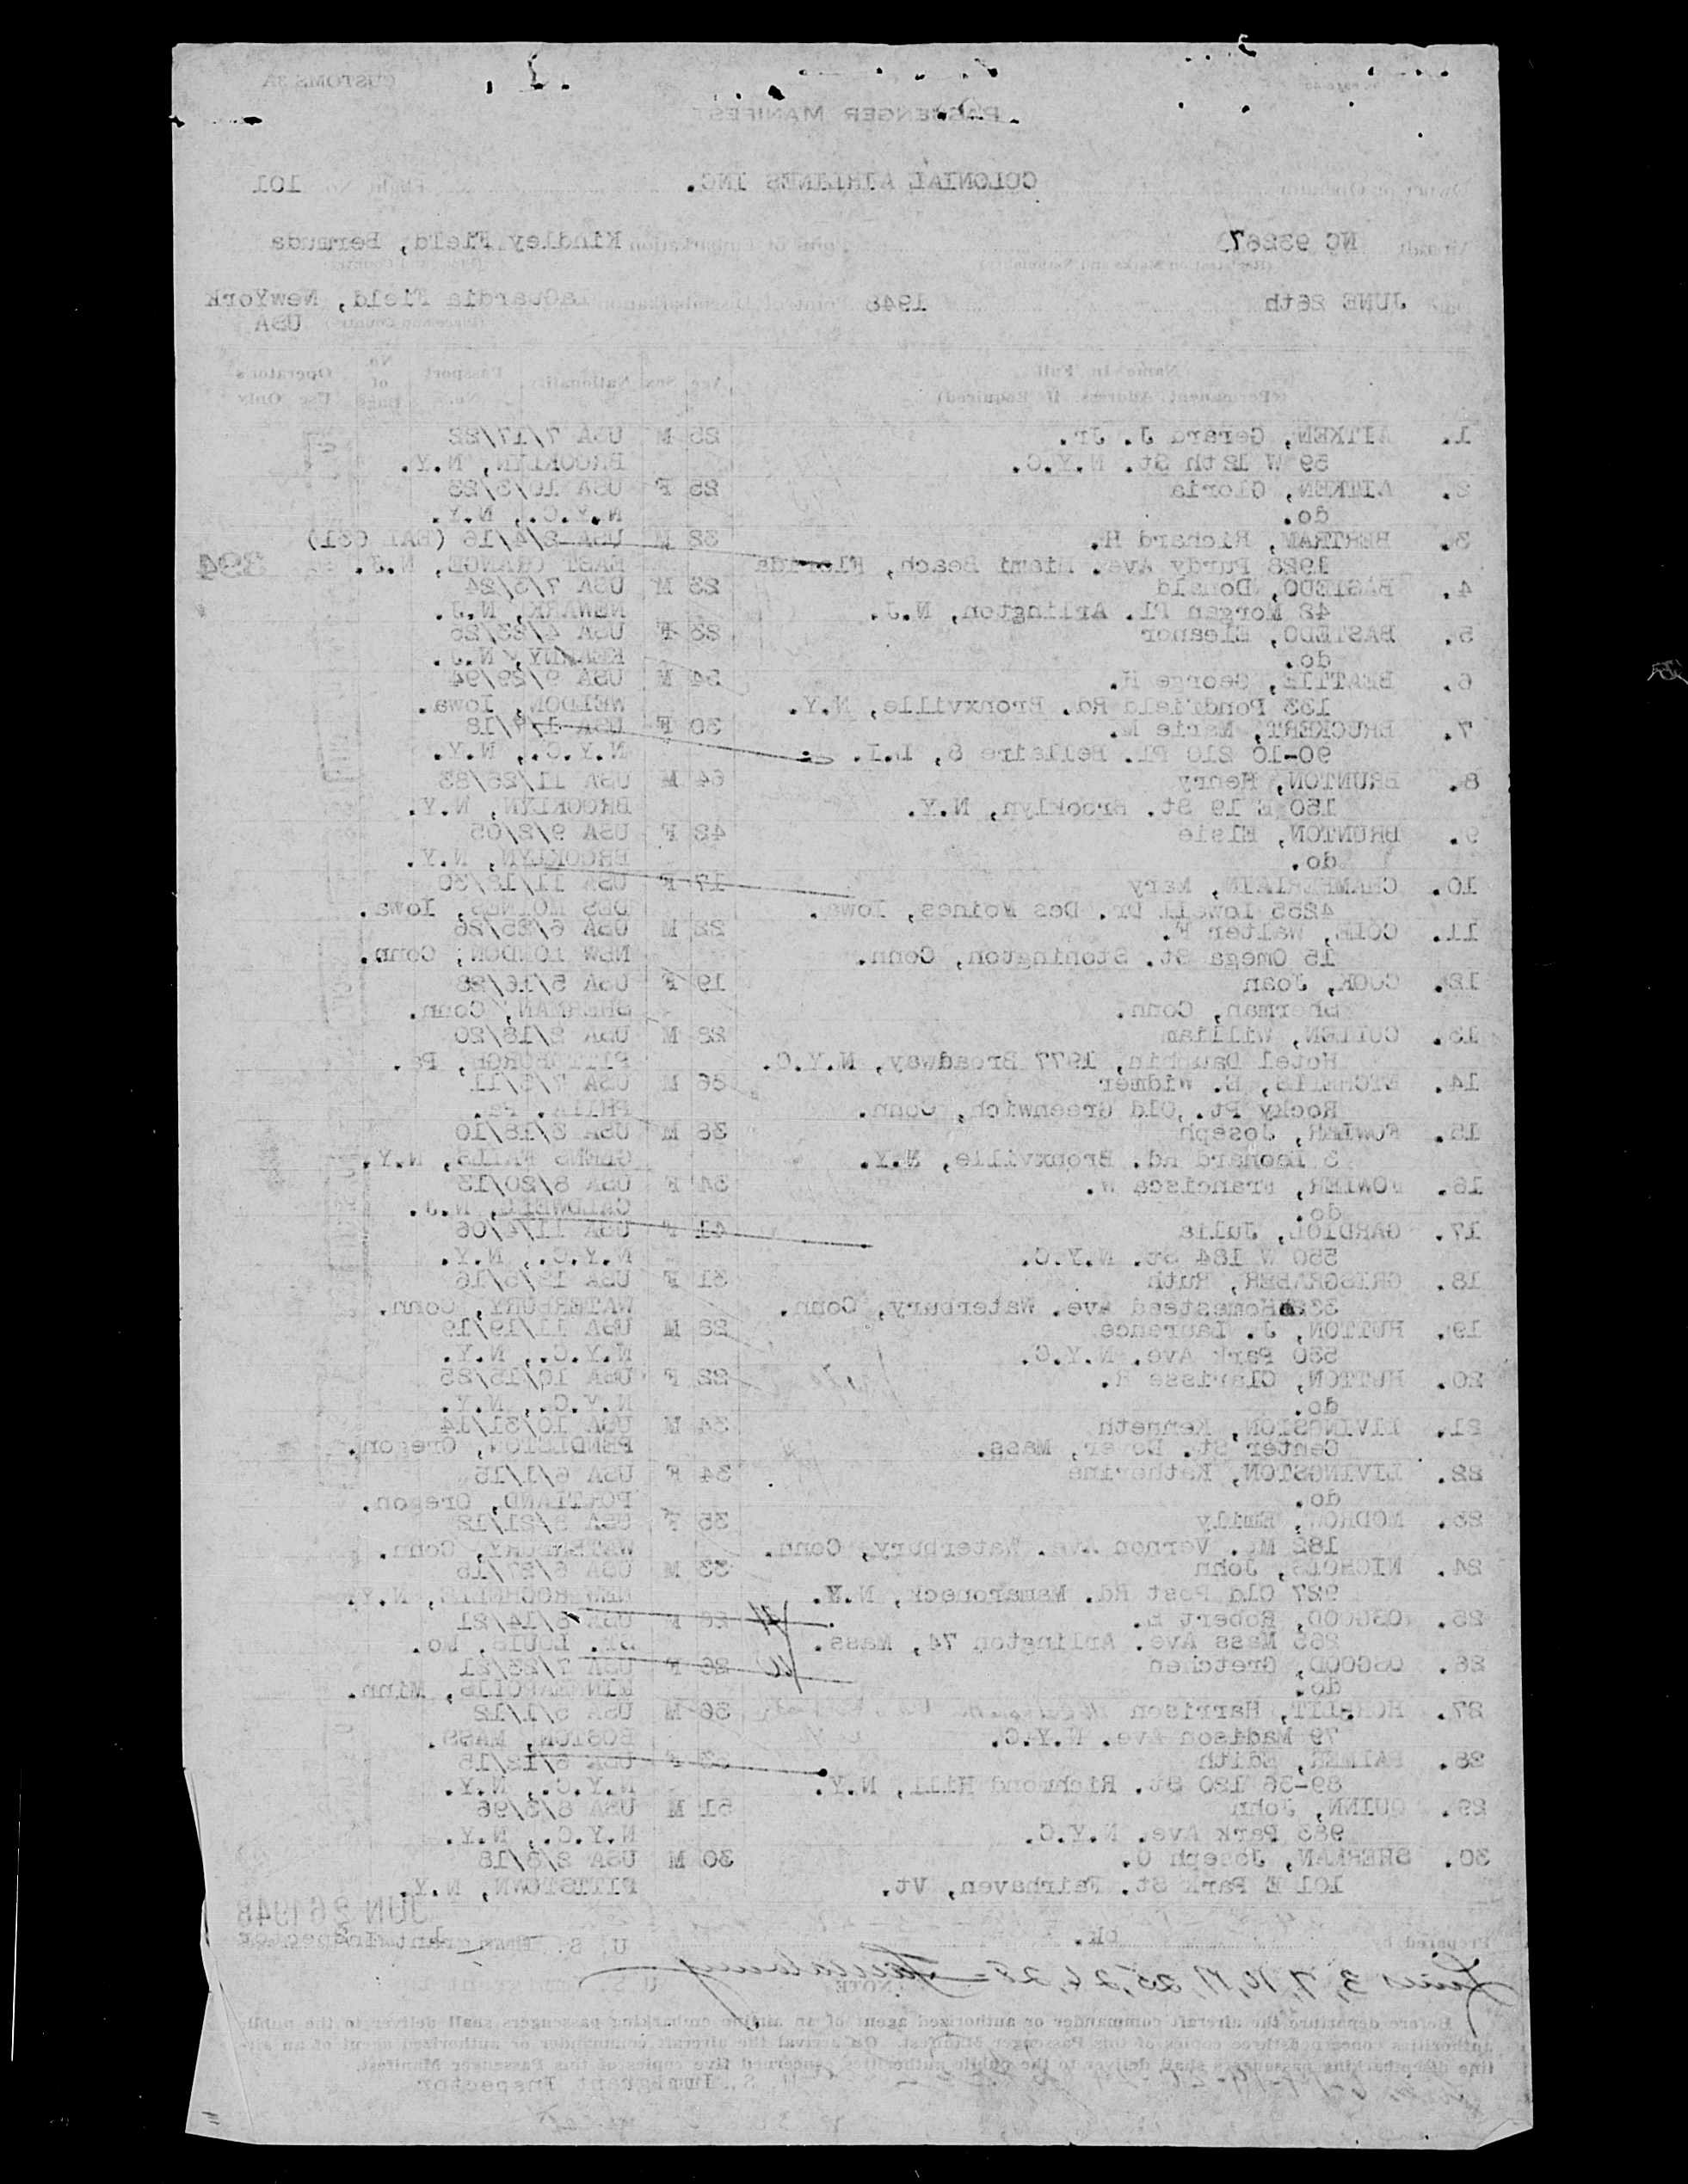 CUSTOMS 3A
PASSENGER MANIFEST
Owner or Operator COLONIAL AIRLINES INC. Flight No. 101
Aircraft NC 93267 Point of Embarkation Kindley Field, Bermuda
(Registration Marks and Nationality) (Place and Country)
Date JUNE 26th 1948 Point of Disembarkation LaGuardia Field, NewYork
(Place and Country) USA
Name In Full (Permanent Address If Required) Age Sex Nationality Passport No. No. of pages Operators Use Only
1. AITKEN, Gerard J. Jr. 25 M USA 7/17/22
59 W 12th St. N.Y.C. BROOKLYN, N.Y.
2. AITKEN, Gloria 25 F USA 10/3/23
do. N.Y.C., N.Y.
3. BERTRAM, Richard H. 32 M USA 2/4/16 (BAI 631)
1928 Purdy Ave. Miami Beach, Florida EAST ORANGE, N.J. 394
4. BASTEDO, Donald 23 M USA 7/3/24
42 Morgan Pl. Arlington, N.J. NEWARK, N.J.
5. BASTEDO, Eleanor 23 F USA 4/23/25
do. KEARNY, N.J.
6. BEATTIE, George H. 54 M USA 9/29/94
133 Pondfield Rd. Bronxville, N.Y. WELDON, Iowa.
7. BRUCKERT, Marie M. 30 F USA 1/9/18
90-10 210 Pl. Bellaire 8, L.I. N.Y.C., N.Y.
8. BRUNTON, Henry 64 M USA 11/26/83
150 E 19 St. Brooklyn, N.Y. BROOKLYN, N.Y.
9. BRUNTON, Elsie 42 F USA 9/2/05
do. BROOKLYN, N.Y.
10. CHAMBERLAIN, Mary 17 F USA 11/12/30
4255 Lowell Dr. Des Moines, Iowa. DES MOINES, Iowa.
11. COLE, Walter F. 22 M USA 6/25/26
15 Omega St. Stonington, Conn. NEW LONDON; Conn.
12. COOK, Joan 19 F USA 5/16/28
Sherman, Conn. SHERMAN, Conn.
13. CULLEN, William 28 M USA 2/18/20
Hotel Dauphin, 1977 Broadway, N.Y.C. PITTSBURGH, Pa.
14. ETCHELLS, E. Widmer 36 M USA 7/3/11
Rocky Pt. Old Greenwich, Conn. PHILA. Pa.
15. FOWLER, Joseph 38 M USA 3/18/10
3 Leonard Rd. Bronxville, N.Y. GLENS FALLS, N.Y.
16. FOWLER, Francisca W. 34 F USA 8/20/13
do. CALDWELL, N.J.
17. GARDIOL, Julia 41 F USA 11/4/06
550 W 184 St. N.Y.C. N.Y.C., N.Y.
18. GRISGRABER, Ruth 31 F USA 12/5/16
Homestead Ave. Waterbury, Conn. WATERBURY, Conn.
19. HUTTON, J. Laurence 28 M USA 11/19/19
530 Park Ave. N.Y.C. N.Y.C., N.Y.
20. HUTTON, Clarisse R. 22 F USA 10/15/25
do. N.Y.C., N.Y.
21. LIVINGSTON, Kenneth 34 M USA 10/31/14
Center St. Dover, Mass. PENDLETON, Oregon.
22. LIVINGSTON, Katherine 34 F USA 6/1/15
do. PORTLAND, Oregon.
23. MODROW, Emily 35 F USA 8/21/12
182 Mt. Vernon Ave. Waterbury, Conn. WATERBURY, Conn.
24. NICHOLS, John 33 M USA 6/27/15
927 Old Post Rd. Mamaroneck, N.Y. NEW ROCHELLE, N.Y.
25. OSGOOD, Robert E. M 26 F USA 8/14/21
265 Mass Ave. Arlington 74, Mass. ST. LOUIS, Mo.
26. OSGOOD, Gretchen 26 F USA 7/23/21
do. MINNEAPOLIS, Minn.
27. HORBLIT, Harrison 36 M USA 5/1/12
79 Madison Ave. N.Y.C. BOSTON, MASS.
28. PALMER, Edith F USA 8/12/15
89-36 120 St. Richmond Hill, N.Y. N.Y.C., N.Y.
29. QUINN, John 51 M USA 8/3/96
983 Park Ave. N.Y.C. N.Y.C., N.Y.
30. SHERMAN, Joseph O. 30 M USA 2/8/18
101 E Park St. Fairhaven, Vt. PITTSTOWN, N.Y.
JUN 26 1948
Prepared by ok. U. S. Immigrant Inspector
Lines 3, 7, 10, 17, 25, 26, 28
NOTE
Before departure the aircraft commander or authorized agent of an airline embarking passengers shall deliver to the public
authorities concerned three copies of this Passenger Manifest. On arrival the aircraft commander or authorized agent of an air-
line disembarking passengers shall deliver to the public authorities concerned five copies of this Passenger Manifest.
U. S. Immigrant Inspector